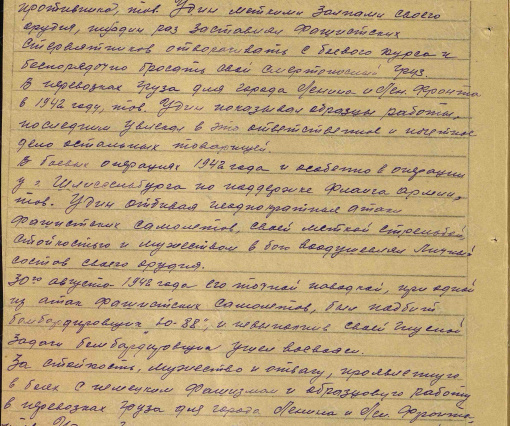 противника, тов. Удин меткими залпами своего
орудия, не один раз заставлял фашистских
стервятников отворачивать с боевого курса и
беспорядочно бросать свой смертоносный груз.
В перевозках груза для города Ленина и Лен. Фронта
в 1942 году, тов. Удин показывал образцы работы,
последним увлекая в это ответственное и почетное
дело остальных товарищей.
В боевых операциях 1942 года и особенно в операции
у г. Шлиссельбурга по поддержке фланга армии,
тов. Удин отбивая неоднократная атаки
фашистских самолетов, своей меткой стрельбой,
стойкостью и мужеством в бою воодушевлял личный
состав своего орудия.
30го августа 1942 года его точной наводкой, при одной
из атак фашистских самолетов, был подбит
бомбардировщик "Ю-88", и невыполнив своей гнусной
задачи бомбардировщик ушел восвояси.
За стойкость, мужество и отвагу, проявленную
в боях с немецким фашизмом и образцовую работу
в перевозках груза для города Ленина и Лен. Фронта,